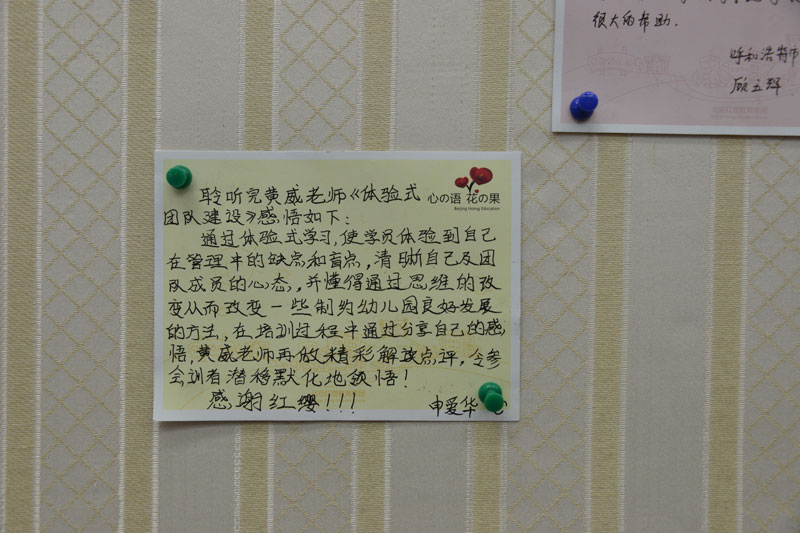 很大的帮助.
呼和浩特市
顾五辉
聆听完黄威老师《体验式
团队建设》感悟如下:
心の语 花の果
Beijing Hoing Education
通过体验式学习,使学员体验到自己
在管理中的缺点和盲点,清晰自己及团
队成员的心态,并懂得通过思维的改
变从而改变一些制约幼儿园良好发展
的方法,在培训过程中通过分享自己的感
悟,黄威老师再做精彩解读点评,令参
会训者潜移默化地领悟!
感谢红缨!!!
申爱华